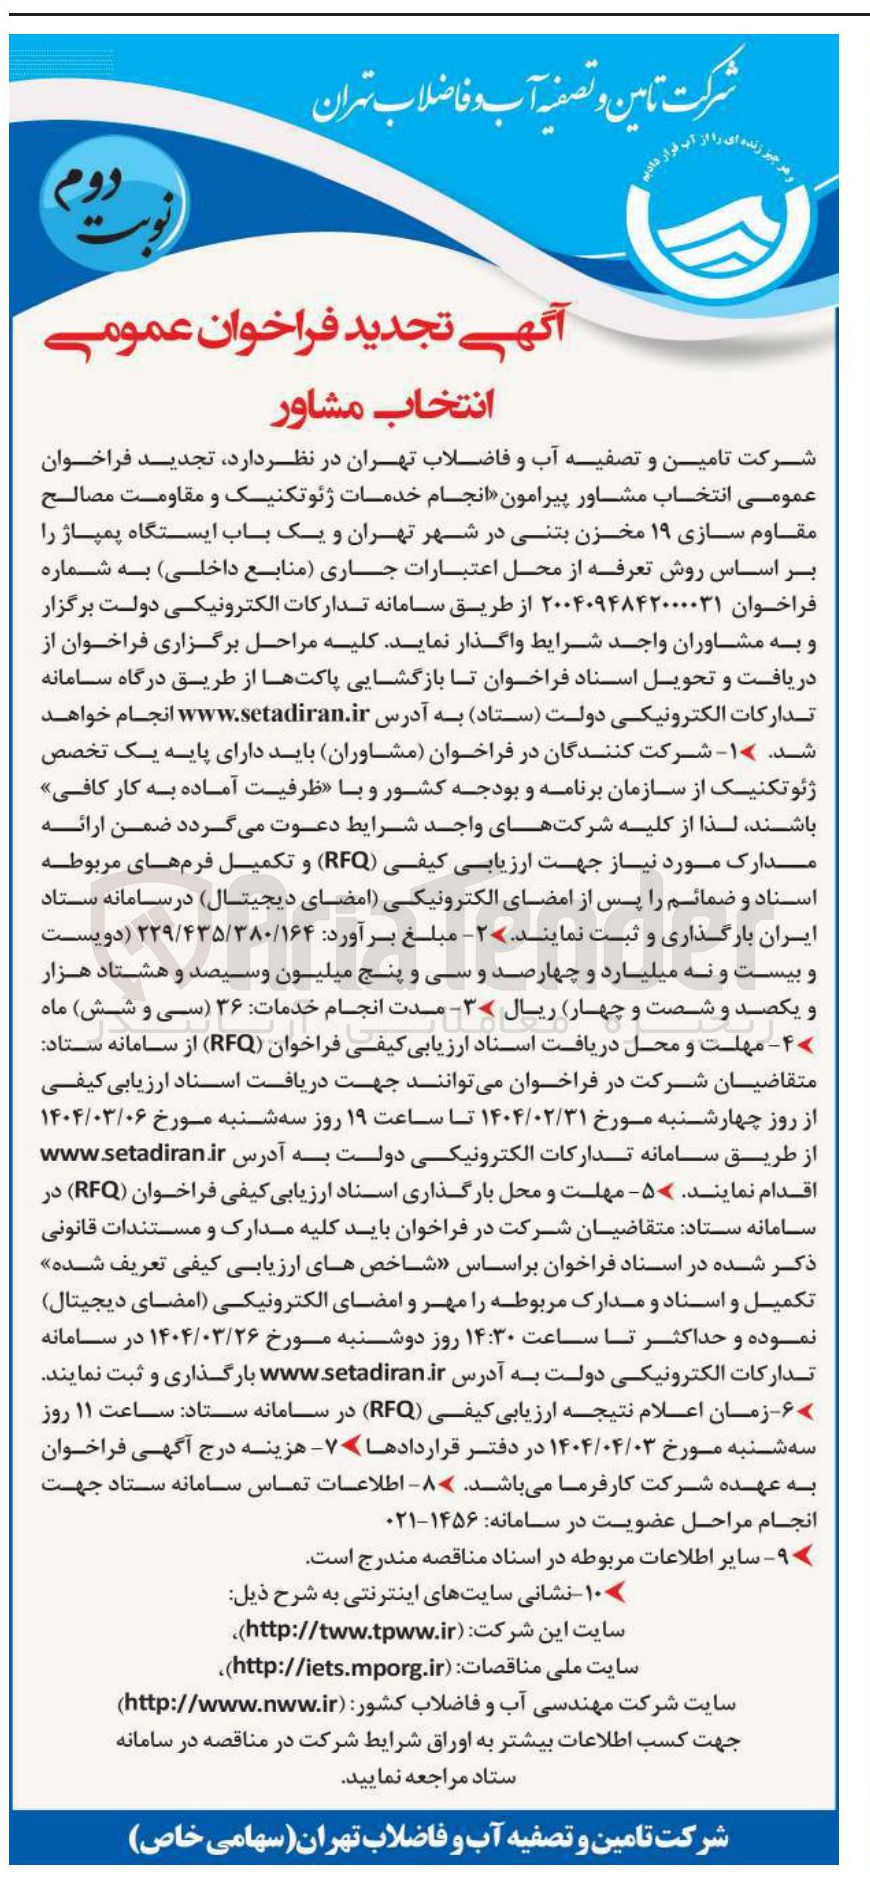 شرکت تامین و تصفیه آب و فاضلاب تهران
و هر چیز زنده ای را از آب قرار دادیم
نوبت دوم
آگهی تجدید فراخوان عمومی
انتخاب مشاور
شرکت تامین و تصفیه آب و فاضلاب تهران در نظردارد، تجدید فراخوان
عمومی انتخاب مشاور پیرامون«انجام خدمات ژئوتکنیک و مقاومت مصالح
مقاوم سازی ۱۹ مخزن بتنی در شهر تهران و یک باب ایستگاه پمپاژ را
بر اساس روش تعرفه از محل اعتبارات جاری (منابع داخلی) به شماره
فراخوان ۲۰۰۴۰۹۴۸۴۲۰۰۰۰۳۱ از طریق سامانه تدارکات الکترونیکی دولت برگزار
و به مشاوران واجد شرایط واگذار نماید. کلیه مراحل برگزاری فراخوان از
دریافت و تحویل اسناد فراخوان تا بازگشایی پاکت‌ها از طریق درگاه سامانه
تدارکات الکترونیکی دولت (ستاد) به آدرس www.setadiran.ir انجام خواهد
شد. ۱- شرکت کنندگان در فراخوان (مشاوران) باید دارای پایه یک تخصص
ژئوتکنیک از سازمان برنامه و بودجه کشور و با «ظرفیت آماده به کار کافی»
باشند، لذا از کلیه شرکت‌های واجد شرایط دعوت می‌گردد ضمن ارائه
مدارک مورد نیاز جهت ارزیابی کیفی (RFQ) و تکمیل فرم‌های مربوطه
اسناد و ضمائم را پس از امضای الکترونیکی (امضای دیجیتال) درسامانه ستاد
ایران بارگذاری و ثبت نمایند. ۲- مبلغ برآورد: ۲۲۹/۴۳۵/۳۸۰/۱۶۴ (دویست
و بیست و نه میلیارد و چهارصد و سی و پنج میلیون وسیصد و هشتاد هزار
و یکصد و شصت و چهار) ریال ۳- مدت انجام خدمات: ۳۶ (سی و شش) ماه
۴- مهلت و محل دریافت اسناد ارزیابی‌کیفی فراخوان (RFQ) از سامانه ستاد:
متقاضیان شرکت در فراخوان می‌توانند جهت دریافت اسناد ارزیابی‌کیفی
از روز چهارشنبه مورخ ۱۴۰۴/۰۲/۳۱ تا ساعت ۱۹ روز سه‌شنبه مورخ ۱۴۰۴/۰۳/۰۶
از طریق سامانه تدارکات الکترونیکی دولت به آدرس www.setadiran.ir
اقدام نمایند. ۵- مهلت و محل بارگذاری اسناد ارزیابی‌کیفی فراخوان (RFQ) در
سامانه ستاد: متقاضیان شرکت در فراخوان باید کلیه مدارک و مستندات قانونی
ذکر شده در اسناد فراخوان براساس «شاخص های ارزیابی کیفی تعریف شده»
تکمیل و اسناد و مدارک مربوطه را مهر و امضای الکترونیکی (امضای دیجیتال)
نموده و حداکثر تا ساعت ۱۴:۳۰ روز دوشنبه مورخ ۱۴۰۴/۰۳/۲۶ در سامانه
تدارکات الکترونیکی دولت به آدرس www.setadiran.ir بارگذاری و ثبت نمایند.
۶-زمان اعلام نتیجه ارزیابی‌کیفی (RFQ) در سامانه ستاد: ساعت ۱۱ روز
سه‌شنبه مورخ ۱۴۰۴/۰۴/۰۳ در دفتر قراردادها ۷- هزینه درج آگهی فراخوان
به عهده شرکت کارفرما می‌باشد. ۸- اطلاعات تماس سامانه ستاد جهت
انجام مراحل عضویت در سامانه: ۱۴۵۶-۰۲۱
۹- سایر اطلاعات مربوطه در اسناد مناقصه مندرج است.
۱۰-نشانی سایت‌های اینترنتی به شرح ذیل:
سایت این شرکت: (http://tww.tpww.ir)،
سایت ملی مناقصات: (http://iets.mporg.ir)،
سایت شرکت مهندسی آب و فاضلاب کشور: (http://www.nww.ir)
جهت کسب اطلاعات بیشتر به اوراق شرایط شرکت در مناقصه در سامانه
ستاد مراجعه نمایید.
شرکت تامین و تصفیه آب و فاضلاب تهران(سهامی خاص)
AriaTender
زنجیره معاملاتی آریاتندر